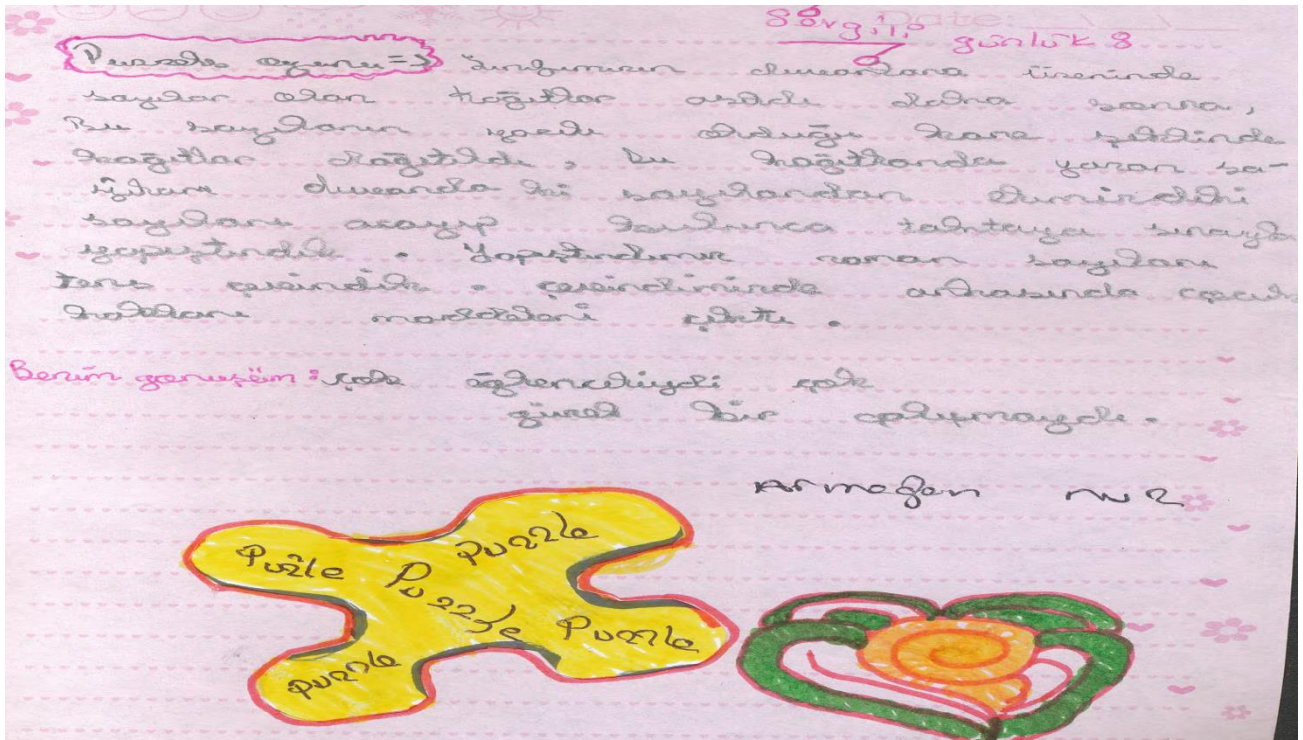 Date:
Sevgili günlük 8
Puzzle oyunu => Sınıfımızın duvarlara üzerinde
sayılar olan kağıtlar asıldı daha sonra,
Bu sayıların yazılı olduğu kare şeklinde
kağıtlar dağıtıldı, bu kağıtlarda yazan sa-
yıları duvarda ki sayılardan elimizdeki
sayıları arayıp bulunca tahtaya sırayla
yapıştırdık. Yapıştırdımız zaman sayıları
ters çevirdik. çevirdimizde arkasında çocuk
hakları maddeleri çıktı.
Benim görüşüm: çok eğlenceliydi çok
güzel bir çalışmaydı.
Armağan
Puzzle
Puzle
Puzzle
Puzzle
puzzle